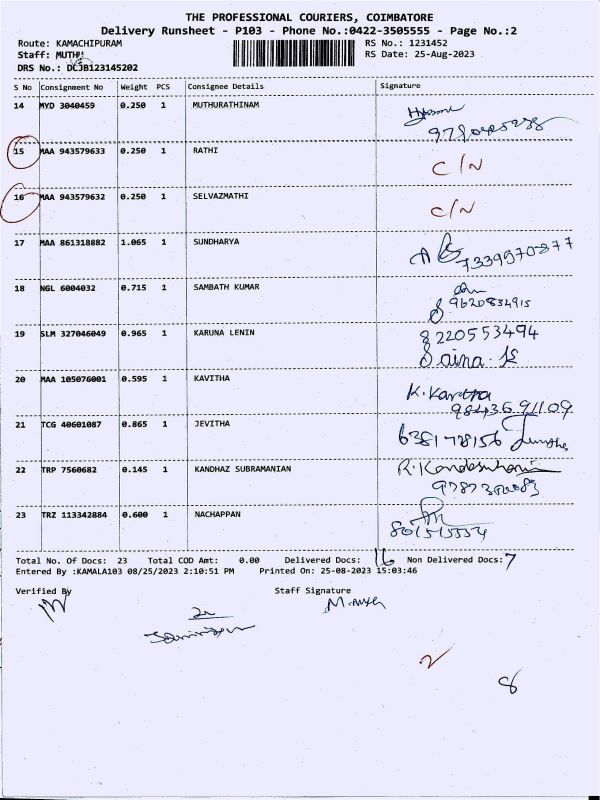 THE PROFESSIONAL COURIERS, COIMBATORE
Delivery Runsheet - P103 - Phone No.:0422-3505555 - Page No.:2
Route: KAMACHIPURAM RS No.: 1231452
Staff: MUTHU RS Date: 25-Aug-2023
DRS No.: DCJB123145202
S No Consignment No Weight PCS Consignee Details Signature
14 MYD 3040459 0.250 1 MUTHURATHINAM
15 MAA 943579633 0.250 1 RATHI C/N
16 MAA 943579632 0.250 1 SELVAZMATHI C/N
17 MAA 861318882 1.065 1 SUNDHARYA
7339970877
18 NGL 6004032 0.715 1 SAMBATH KUMAR
9620834915
19 SLM 327046049 0.965 1 KARUNA LENIN 8220553494
Saina. K
20 MAA 105076001 0.595 1 KAVITHA K. Kavitha
9843691109
21 TCG 40601087 0.865 1 JEVITHA 638178156
22 TRP 7560682 0.145 1 KANDHAZ SUBRAMANIAN
23 TRZ 113342884 0.600 1 NACHAPPAN
Total No. Of Docs: 23 Total COD Amt: 0.00 Delivered Docs: 16 Non Delivered Docs: 7
Entered By :KAMALA103 08/25/2023 2:10:51 PM Printed On: 25-08-2023 15:03:46
Verified By Staff Signature
2
8